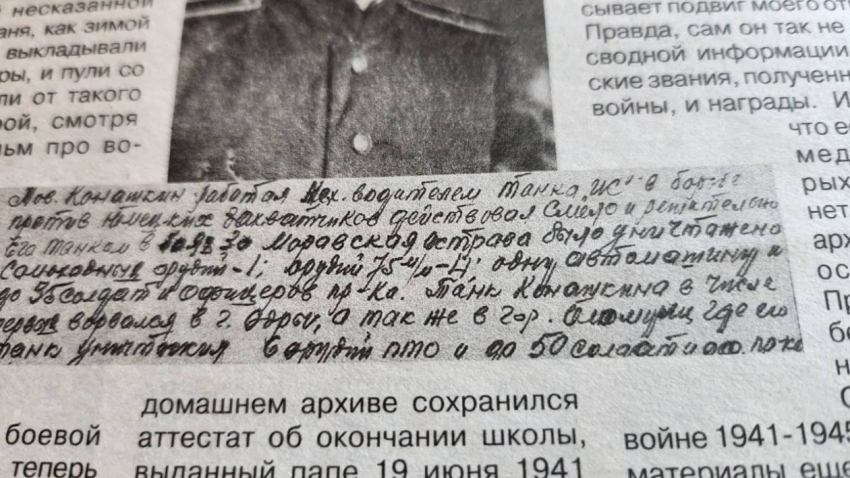 несказанной
аня, как зимой
выкладывали
ры, и пули со
ли от такого
рой, смотря
льм про во-
сывает подвиг моего от
Правда, сам он так не
сводной информации
ские звания, полученн
войны, и награды. И
что е
мед
рых
нет
арх
ос
Пр
бе
н
Тов. Конашкин работая Мех. водителем танка "ИС" в борьбе
против немецких захватчиков действовал смело и решительно
Его танком в боях за Моравская острава было уничтажено
Самоходных орудий-1; орудий 75 м/м-4; одну автомашину и
до 35 солдат и офицеров пр-ка. Танк Конашкина в числе
первых ворвался в г. а так же в гор. Оломуец где его
танк уничтожил 6 орудий ПТО и до 50 солдат и
домашнем архиве сохранился
аттестат об окончании школы,
выданный папе 19 июня 1941
боевой
теперь
войне 1941-1945
материалы еще